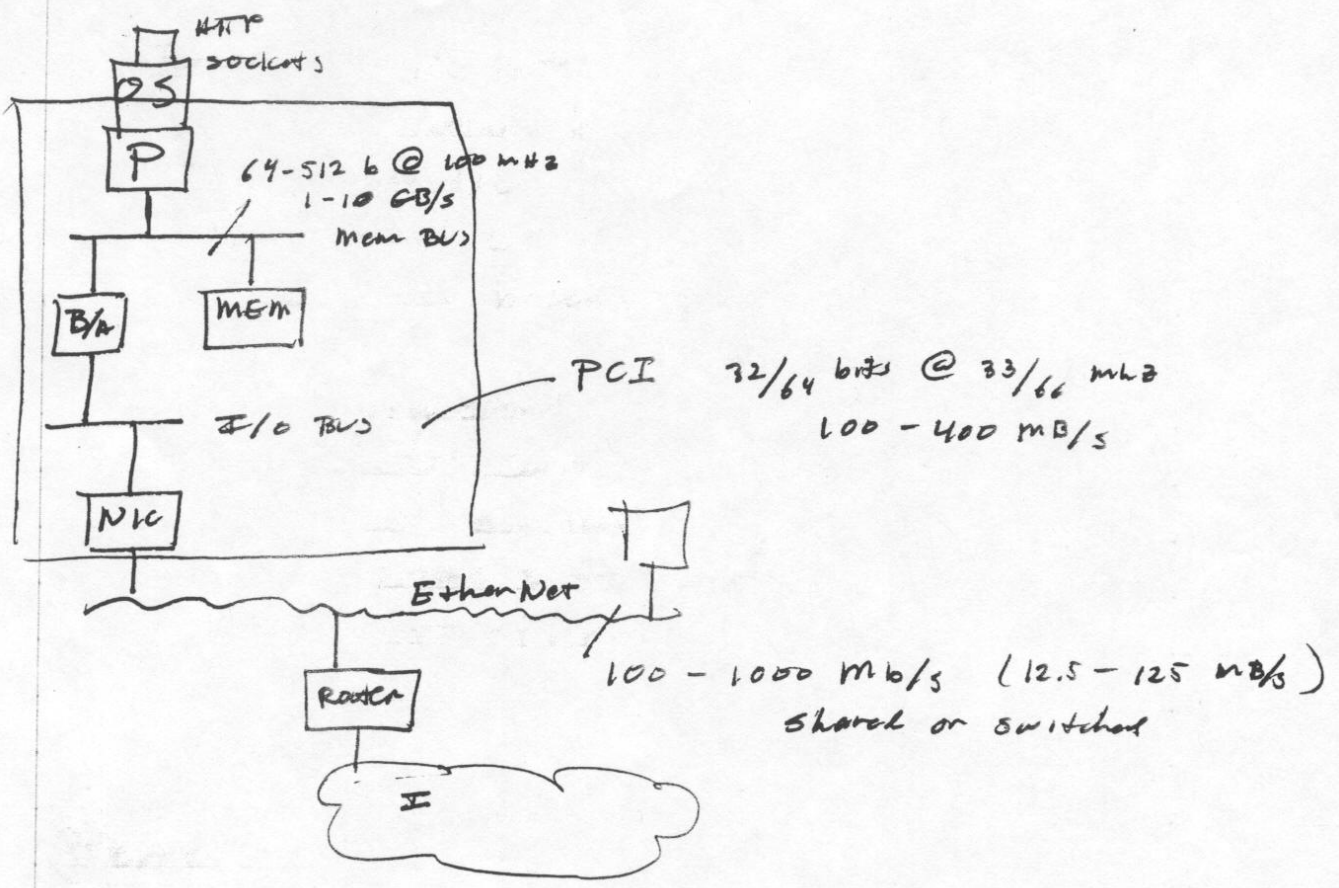 HTTP
sockets
OS
P
64-512 b @ 100 mHz
1-10 GB/s
Mem BUS
B/A
MEM
PCI 32/64 bits @ 33/66 mhz
100 - 400 MB/s
I/O BUS
NIC
EtherNet
100 - 1000 Mb/s (12.5 - 125 MB/s)
shared or switched
Router
I